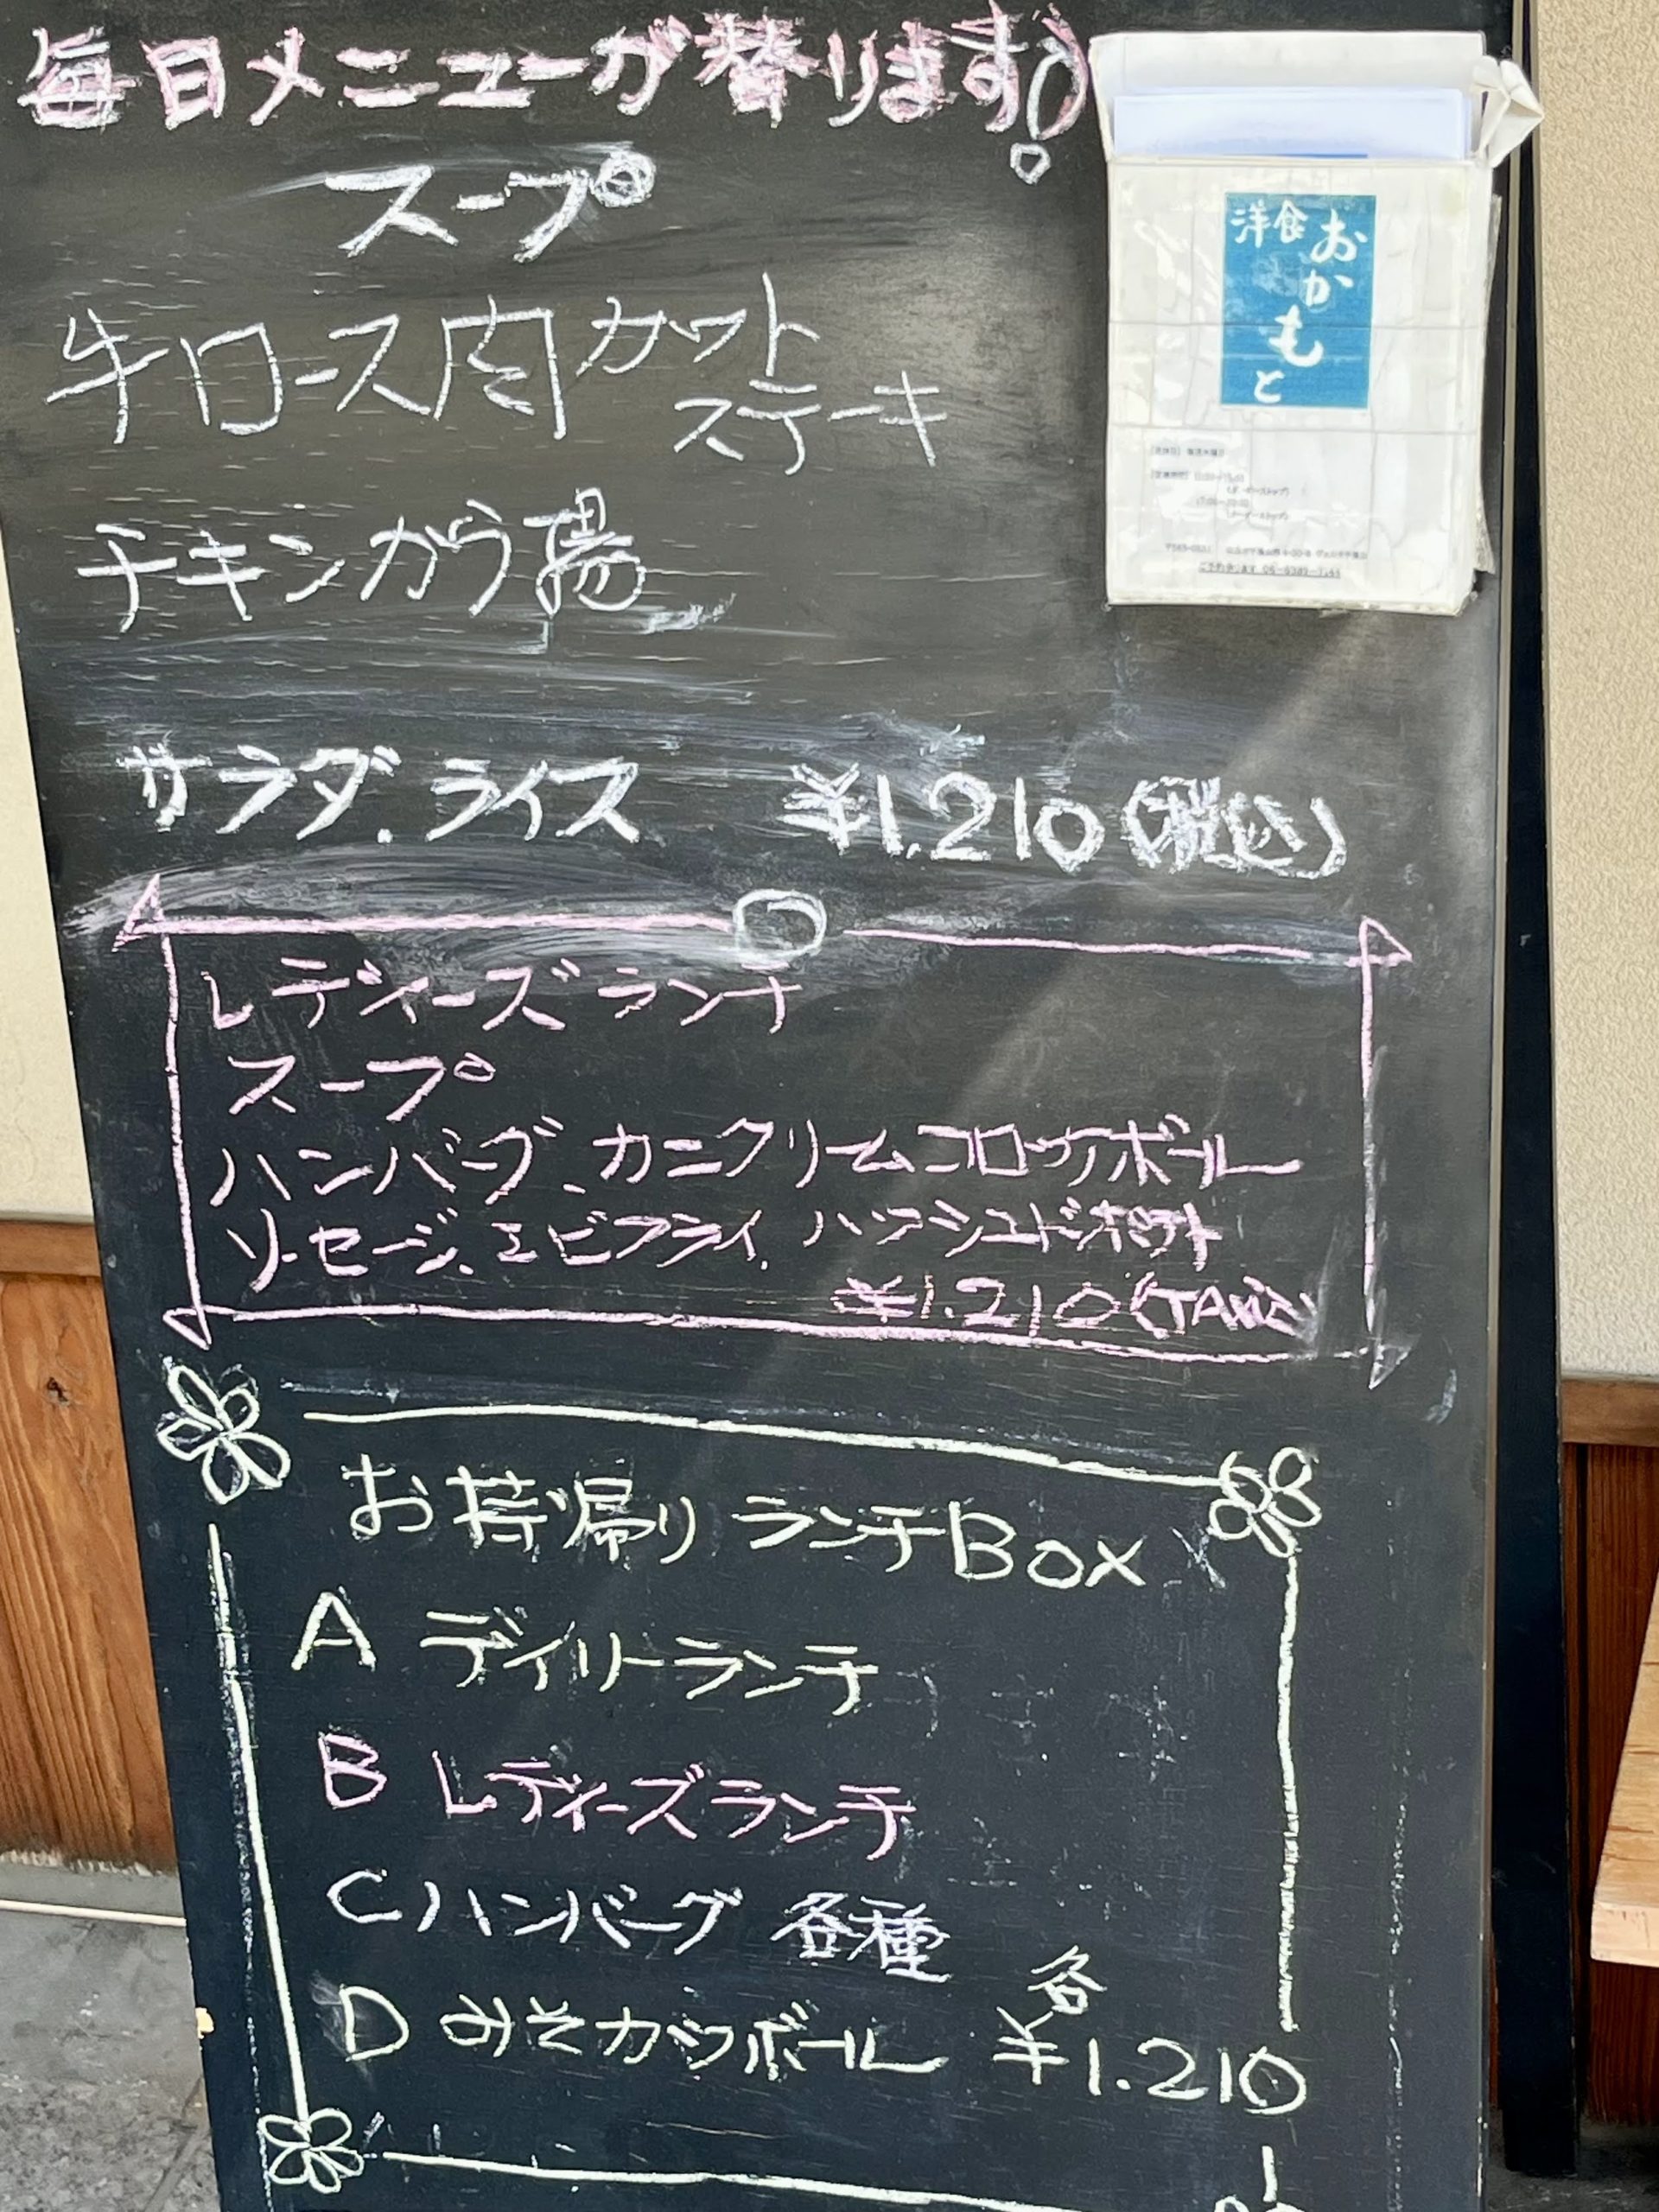 毎日メニューが替ります!
スープ
牛ロース肉カット
ステーキ
チキンから揚
サラダ、ライス ¥1.210(税込)
レディーズランチ
スープ
ハンバーグ、カニクリームコロッケボール
ソーセージ、エビフライ、ハッシュドポテト
¥1.210(TAX込)
お持帰りランチBOX
A デイリーランチ
B レディーズランチ
C ハンバーグ 各種
D みそカツボール 各¥1.210
洋食おかもと